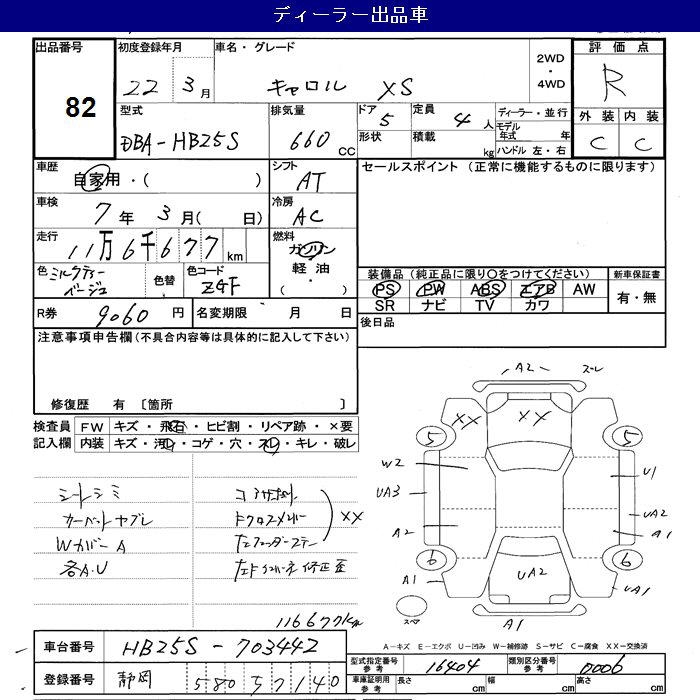 ディーラー出品車
出品番号 82
初度登録年月 22 3月
車名・グレード キャロル XS
2WD・4WD
評価点 R
外装 C 内装 C
型式 DBA-HB25S
排気量 660 CC
ドア 5 定員 4人
形状 積載 kg
ディーラー・並行
モデル年式 年
ハンドル 左・右
車歴 自家用・( )
シフト AT
セールスポイント (正常に機能するものに限ります)
車検 7年 3月( 日)
冷房 AC
走行 11万6千677 km
燃料 ガソリン 軽油・( )
色 ミルクティーベージュ 色替 色コード ZGF
装備品(純正品に限り○をつけてください)
PS PW ABS エアB AW
SR ナビ TV カワ
新車保証書 有・無
R券 9060円 名変期限 月 日
後日品
注意事項申告欄(不具合内容等は具体的に記入して下さい)
修復歴 有 〔箇所 〕
検査員記入欄
FW キズ・飛石・ヒビ割・リペア跡・×要
内装 キズ・汚レ・コゲ・穴・スレ・キレ・破レ
シートシミ
カーペットヤブレ
Wカバー A
各A.U
コアサポート
Fクロスメンバー
左フェンダーステー
XX
116677km
A2 スレ
XX XX
5 5
W2 U1
UA3 UA2
A2 A1
6 6
A1 UA2 UA1
スペア A1
A-キズ E-エクボ U-凹み W-補修跡 S-サビ C-腐食 XX-交換済
車台番号 HB25S-703442
登録番号 静岡 580 57140
型式指定番号 参考 16404
類別区分番号 参考 0006
車庫証明用 参考 長さ cm 幅 cm 高さ cm